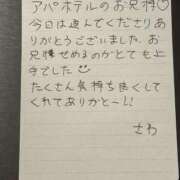 アパホテルのお兄様♡
今日は選んでくださりあ
りがとうございました。お
兄様せめるのがとても上
手でした☺
たくさん気持ち良くして
くれてありがとー!!
さわ